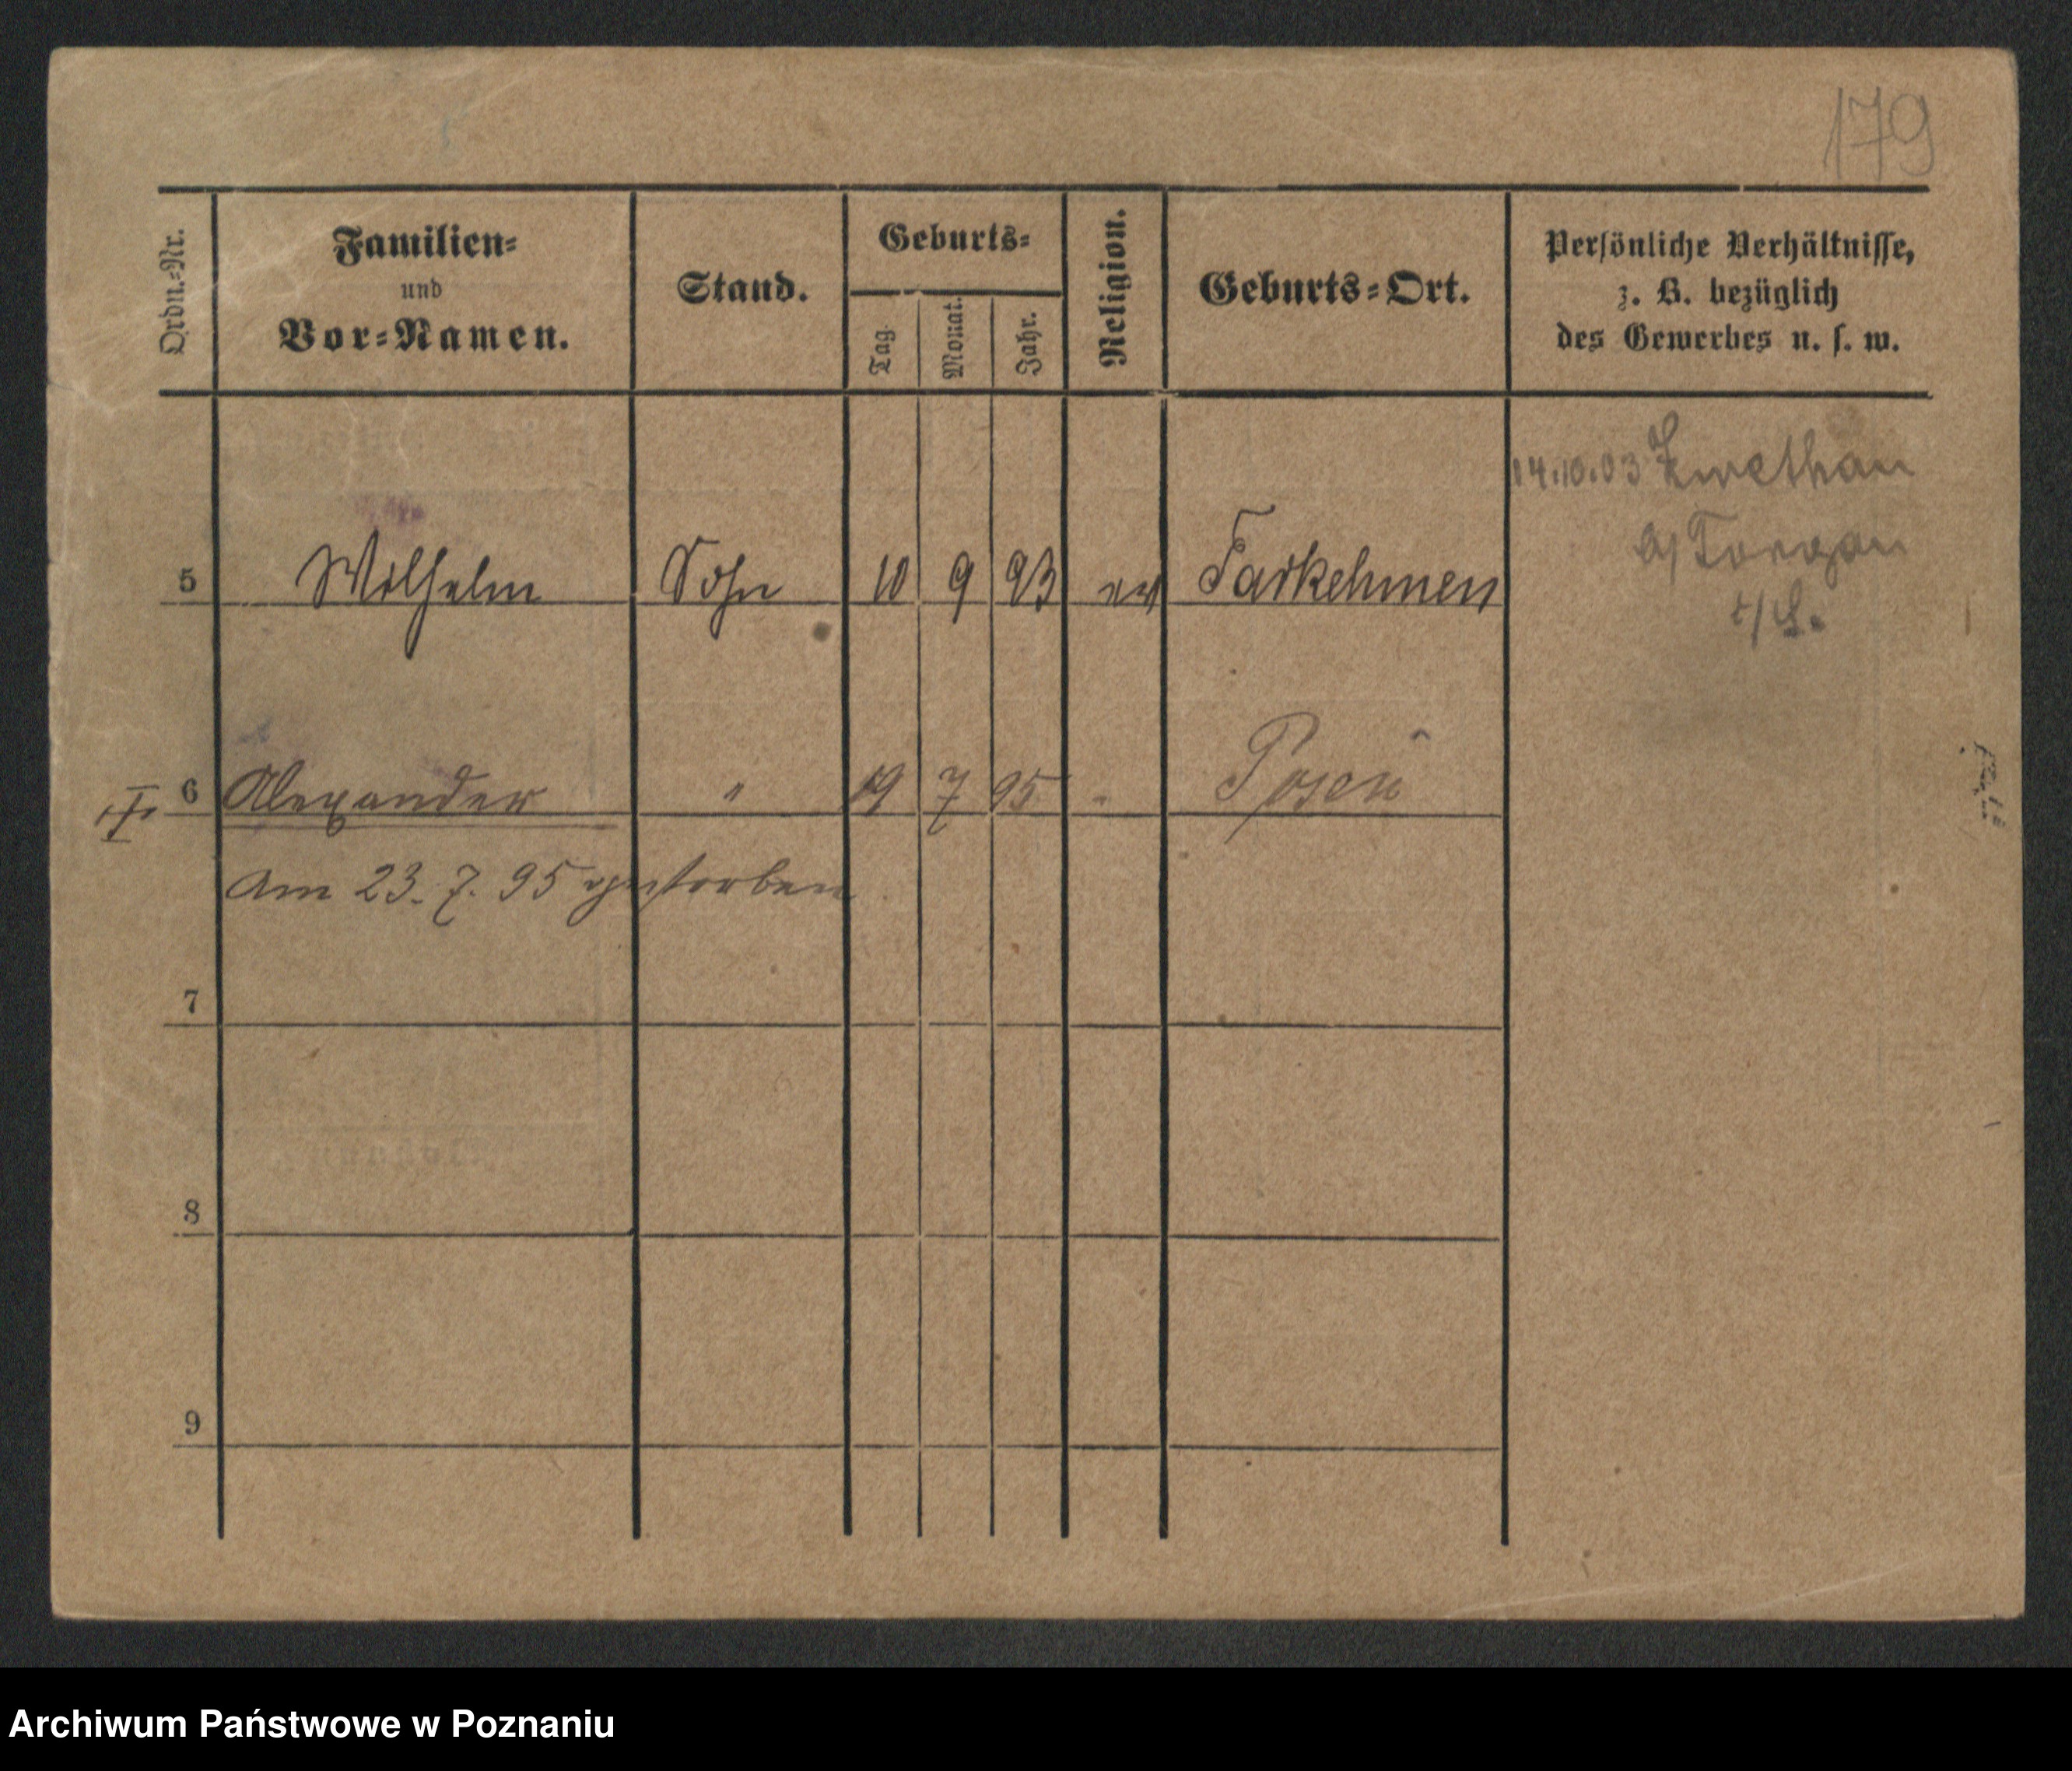 179
Ordn.-Nr.
Familien-
und
Vor-Namen.
Stand.
Geburts-
Tag.
Monat.
Jahr.
Religion.
Geburts-Ort.
Persönliche Verhältnisse,
z. B. bezüglich
des Gewerbes u. s. w.
14.10.03 Zwethau
a/ Torgau
5 Wilhelm Sohn 10 9 93 ev Darkehmen
6 Alexander " 19 7 95 " Posen
Am 23. 7. 95 gestorben
7
8
9
Archiwum Państwowe w Poznaniu